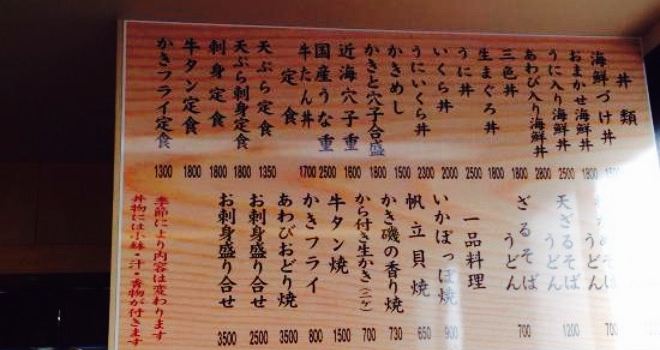 丼類
海鮮づけ丼
おまかせ海鮮丼
うに入り海鮮丼 2500
あわび入り海鮮丼 2800
三色丼 1800
生まぐろ丼 1800
うに丼 2500
いくら丼 2000
うにいくら丼 2300
かきめし 1500
かきと穴子合盛 1800
近海穴子重 1600
国産うな重 2500
牛たん丼 1700
定食
天ぷら定食 1350
天ぷら刺身定食 1800
刺身定食 1800
牛タン定食 1800
かきフライ定食 1300
そば
うどん 700
天ざるそば
うどん 1200
ざるそば
うどん 700
一品料理
いかぽっぽ焼 900
帆立貝焼 650
かき磯の香り焼 730
から付き生かき(二ヶ) 700
牛タン焼 1500
かきフライ 800
あわびおどり焼 3500
お刺身盛り合せ 2500
お刺身盛り合せ 3500
季節により内容は変わります
丼物には小鉢・汁・香物が付きます